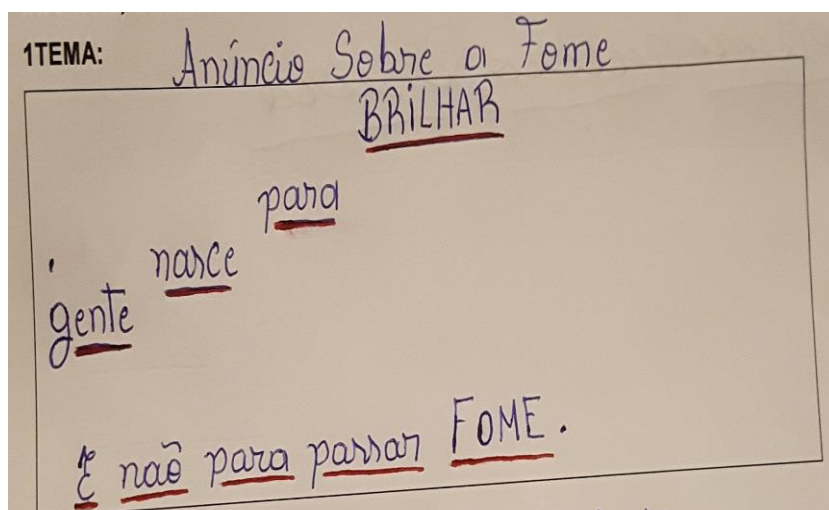 1TEMA: Anúncio Sobre a Fome
BRiLHAR
para
nasce
gente
E não para passar FOME.